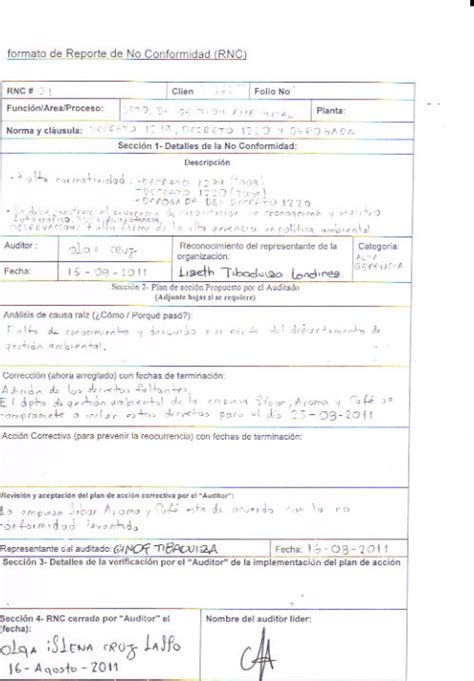 formato de Reporte de No Conformidad (RNC)
RNC # 01 Clien Folio No
Función/Area/Proceso: DPTO. DE GESTION AMBIENTAL Planta:
Norma y cláusula: DECRETO 1299, DECRETO 1220 Y DEROGADA
Sección 1- Detalles de la No Conformidad:
Descripción
- Falta normatividad: -DECRETO 1299 (2008)
-DECRETO 1220 (2005)
-DEROGADA DEL DECRETO 1220
de capacitación cronograma y registro
Falta firma de la alta gerencia en política ambiental
Auditor: Olga cruz Reconocimiento del representante de la organización: Lizeth Tibaduiza Londines. Categoria: ALTA GERENCIA
Fecha: 16-08-2011
Sección 2- Plan de acción Propuesto por el Auditado
(Adjunte hojas si se requiere)
Análisis de causa raíz (¿Cómo / Porqué pasó?):
Falta de conocimiento y descuido por parte del departamento de
gestión ambiental.
Corrección (ahora arreglado) con fechas de terminación:
Adición de los decretos faltantes.
El dpto de gestión ambiental de la empresa Sabor, Aroma y Café se
compromete a incluir estos decretos para el día 25-08-2011
Acción Correctiva (para prevenir la reocurrencia) con fechas de terminación:
Revisión y aceptación del plan de acción correctiva por el "Auditor":
La empresa Sabor, Aroma y Café esta de acuerdo con la no
conformidad levantida
Representante del auditado: GINCE TIBADUIZA Fecha: 16-08-2011
Sección 3- Detalles de la verificación por el "Auditor" de la implementación del plan de acción
Sección 4- RNC cerrada por "Auditor" el (fecha): Nombre del auditor lider:
Olga iSLENA CRUZ LASSO
16-Agosto-2011